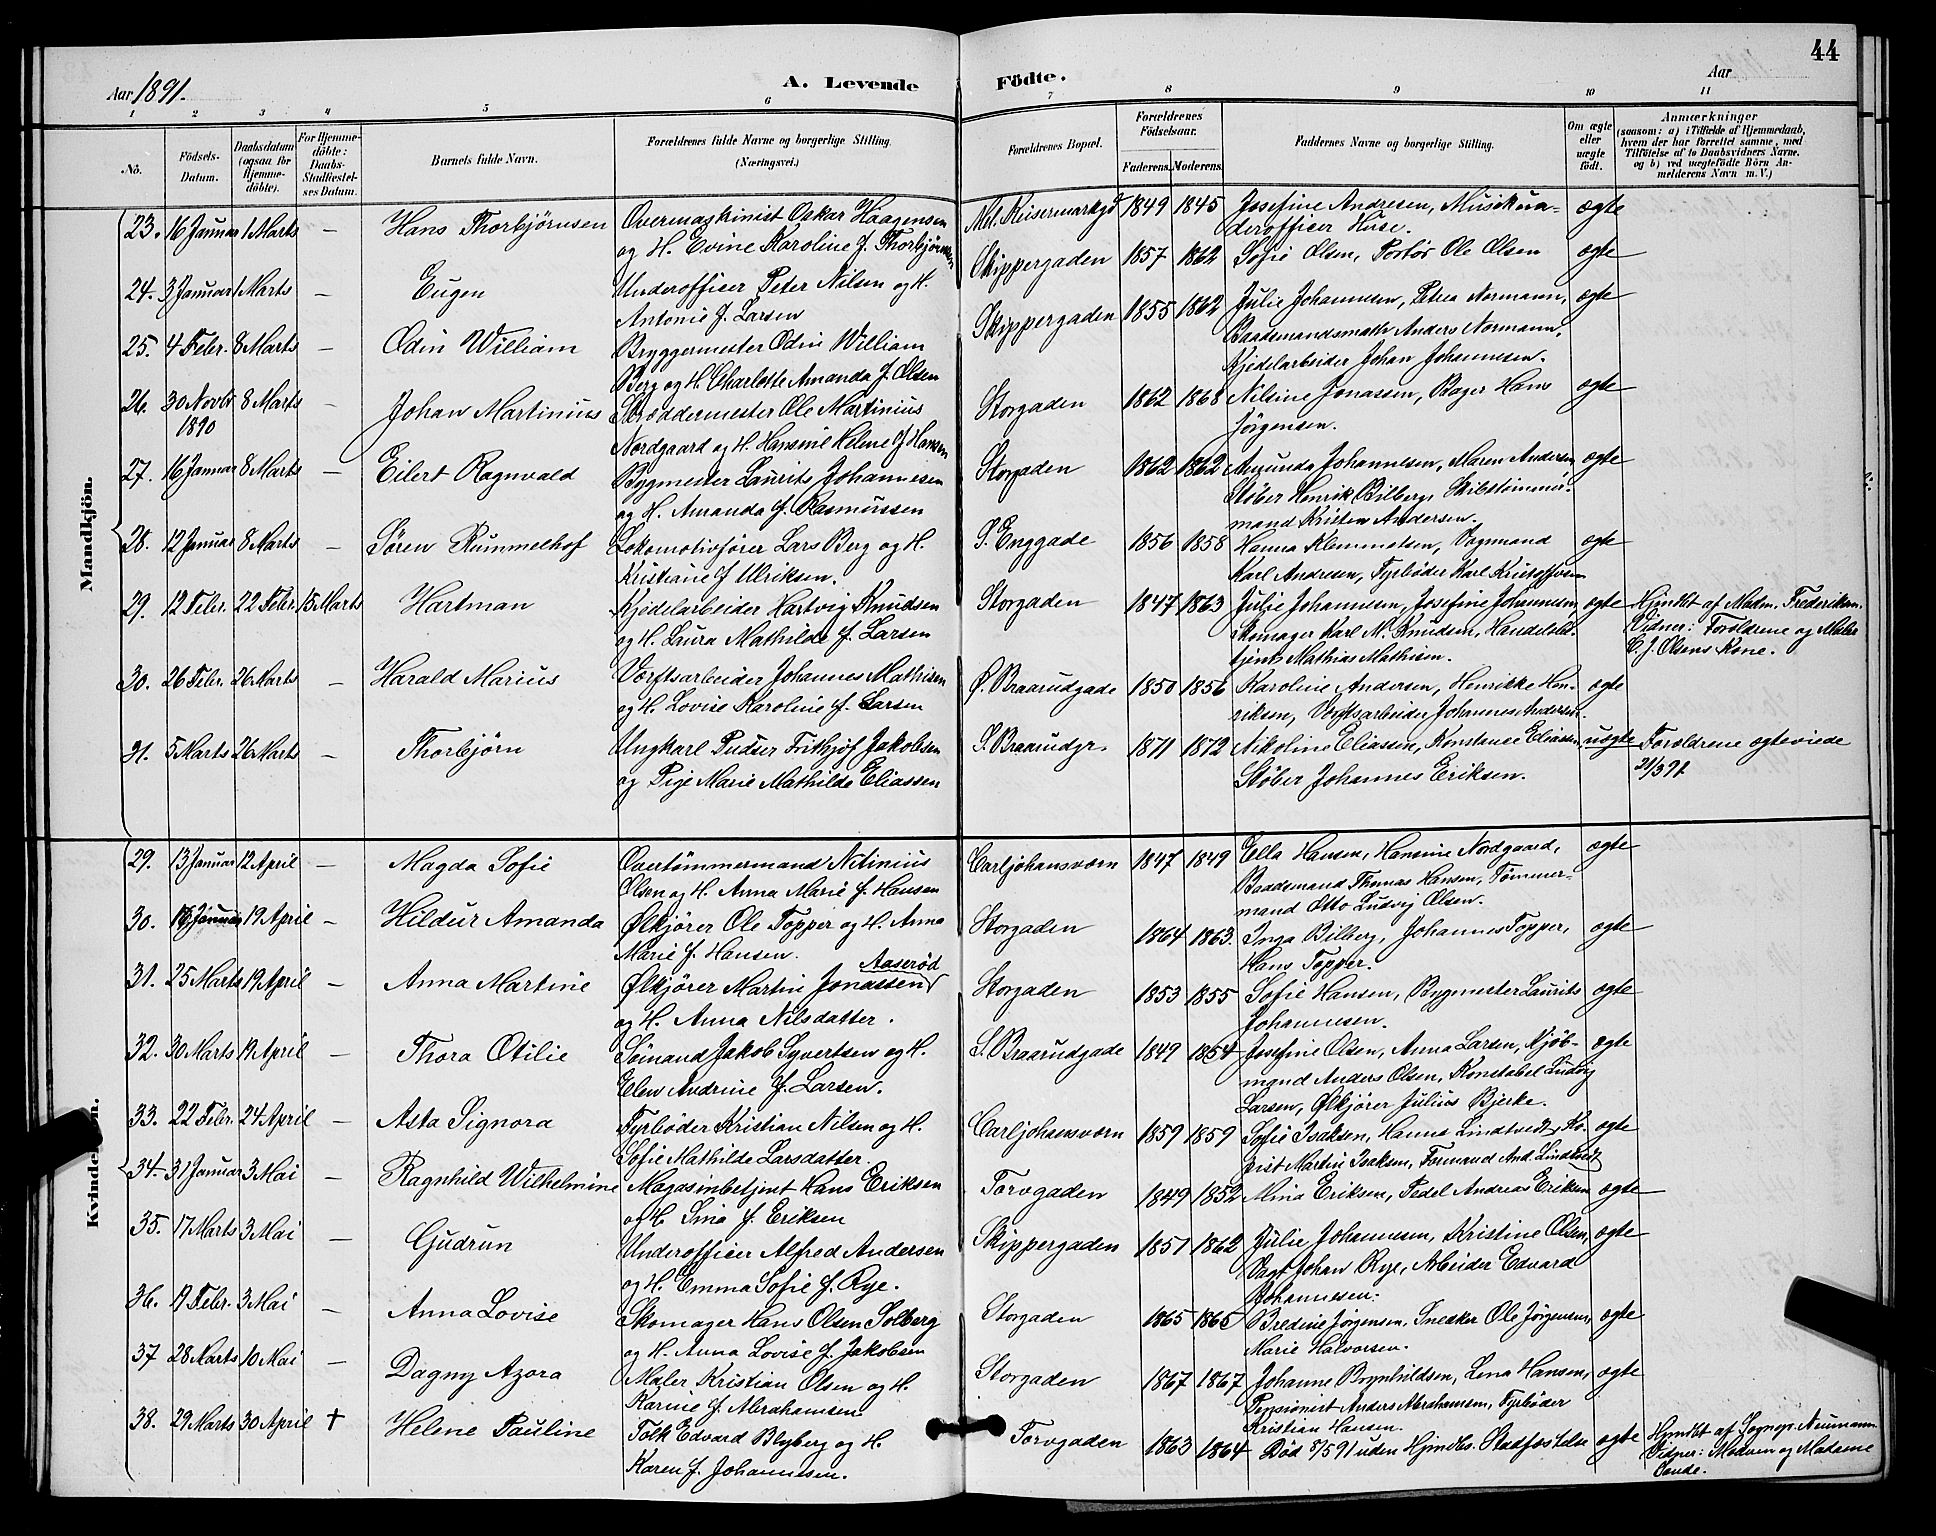 44
Aar 1891.
A. Levende Födte.
Aar
1 2 3 4 5 6 7 8 9 10 11
No.
Födsels-Datum.
Daabsdatum (ogsaa for Hjemme-döbte).
For Hjemme-döbte: Daabs-Stadfæstel-ses Datum.
Barnets fulde Navn.
Forældrenes fulde Navne og borgerlige Stilling. (Næringsvei.)
Forældrenes Bopæl.
Forældrenes Födselsaar.
Faderens. Moderens.
Faddernes Navne og borgerlige Stilling.
Om ægte eller uægte födt.
Anmærkninger
(saasom: a) i Tilfælde af Hjemmedaab, hvem der har forrettet samme, med Tilföielse af to Daabsvidners Navne, og b) ved uægtefödte Börn An-melderens Navn m. V.)
Mandkjön.
23. 16 Januar 1 Marts — Hans Thorbjörnsen Overmaskinist Oskar Haagensen Nel. Keisermarkgd 1849 1845 Josefine Andresen, Musikun- ægte
og H. Evine Karoline f. Thorbjörnsen derofficer Huse.
24. 3 Januar 1 Marts — Eugen Underofficer Peter Nilsen og H. Skippergaden 1857 1862 Sofie Olsen, Portör Ole Olsen ægte
Antonie f. Larsen
25. 4 Febr. 8 Marts — Odin William Bryggermester Odin William Skippergaden 1855 1862 Julie Johannesen, Petra Normann, ægte
Berg og H. Charlotte Amanda f. Olsen Baadsmandsmath Anders Normann,
Kjedelarbeider Johan Johannesen.
26. 30 Novbr 8 Marts — Johan Martinius Skræddermester Ole Martinius Storgaden 1862 1868 Nilsine Jonassen, Bager Hans ægte
1890 Nordgaard og H. Hansine Helene f. Hansen Jörgensen.
27. 16 Januar 8 Marts — Eilert Ragnvald Bygmester Laurits Johannesen Storgaden 1862 1862 Amunda Johannesen, Maren Andersen ægte
og H. Amanda f. Rasmussen Støber Henrik Bilberg, Skibstömmer-
mand Kristen Andersen.
28. 12 Januar 8 Marts — Sören Rummelhof Lokomotivförer Lars Berg og H. S. Enggade 1856 1858 Hanna Klemmetsen, Vognmand ægte
Kristiane f. Ulriksen. Karl Andresen, Fyrböder Karl Kristoffersen
29. 12 Febr. 22 Febr. 15 Marts Hartman Kjedelarbeider Hartvig Knudsen Storgaden 1847 1863 Julie Johannesen, Josefine Johannesen, ægte Hjmdbt af Madm. Frederiksen.
og H. Laura Mathilde f. Larsen Skomager Karl M. Knudsen, Handelsbe- Vidner: Forældrene og Maler
tjent Mathias Mathisen. C. J. Olsens Kone.
30. 26 Febr. 26 Marts — Harald Marius Værftsarbeider Johannes Mathisen Ø. Braarudgade 1850 1856 Karoline Andersen, Henrikke Hen- ægte
og H. Lovise Karoline f. Larsen riksen, Værftsarbeider Johannes Andersen.
31. 5 Marts 26 Marts — Thorbjörn Ungkarl Pudser Frithjof Jakobsen S. Braarudgr. 1871 1872 Nikoline Eliassen, Konstance Eliassen, uægte Forældrene ægteviede
og Pige Marie Mathilde Eliassen Støber Johannes Eriksen. 31/3 91
Kvindekjön.
29. 13 Januar 12 April — Magda Sofie Overtömmermand Nitinius Carljohansværn 1847 1849 Ella Hansen, Hansine Nordgaard, ægte
Olsen og H. Anna Marie f. Hansen Baadsmand Thomas Hansen, Tömmer-
mand Otto Ludvig Olsen.
30. 16 Januar 19 April — Hildur Amanda Ølkjører Ole Topper og H. Anna Storgaden 1864 1863. Inga Bilberg, Johannes Topper, ægte
Marie f. Hansen. Hans Topper.
31. 25 Marts 19 April — Anna Martine Ølkjører Martin Jonassen Aaseröd Storgaden 1853 1855 Sofie Hansen, Bygmester Laurits ægte
og H. Anna Nilsdatter. Johannesen.
32. 30 Marts 19 April — Thora Otilie Sömand Jakob Syvertsen og H. S. Braarudgade 1849 1854 Josefine Olsen, Anna Larsen, Kjöb- ægte
Elen Andrine f. Larsen. mand Anders Olsen, Konstabel Ludvig
Larsen, Ølkjører Julius Bjerke.
33. 22 Febr. 24 April — Asta Signora Fyrböder Kristian Nilsen og H. Carljohansværn 1859 1859 Sofie Isaksen, Hanna Lindtvedt, Ko- ægte
Sofie Mathilde Larsdatter. pist Martin Isaksen, Formand And. Lindtvedt
34. 31 Januar 3 Mai — Ragnhild Wilhelmine Magasinbetjent Hans Eriksen Torvgaden 1849 1852 Mina Eriksen, Pedel Andreas Eriksen ægte
og H. Sina f. Eriksen
35. 17 Marts 3 Mai — Gudrun Underofficer Alfred Andersen Skippergaden 1851 1862 Julie Johannesen, Kristine Olsen, ægte
og H. Emma Sofie f. Rye. Vagt Johan Rye, Arbeider Edvard
Johannesen.
36. 19 Febr. 3 Mai — Anna Lovise Skomager Hans Olsen Solberg Storgaden 1865 1865 Bredine Jörgensen, Snedker Ole Jörgensen, ægte
og H. Anna Lovise f. Jakobsen Marie Halvorsen.
37 28 Marts 10 Mai — Dagny Azora Maler Kristian Olsen og H. Storgaden 1867 1867 Johanne Brynhildsen, Lena Hansen, ægte
Karine f. Abrahamsen Pensionist Anders Abrahamsen, Fyrböder
Kristian Hansen.
38. 29 Marts 30 April † Helene Pauline Tolk Edvard Blyberg og H. Torvgaden 1863 1864 Död 8/5 91 uden Hjmdbs. Stadfæstelse ægte Hjmdbt af Sognepr. Neumann
Karen f. Johannesen. Vidner: Moderen og Madame
Sande.